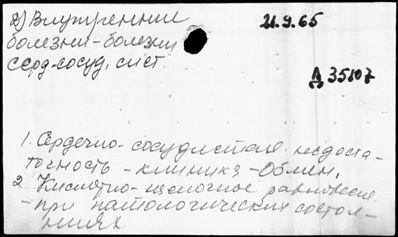 2) Внутренние
болезни - болезни
серд-сосуд. сист.
21.9.65
Д 35107
1. Сердечно-сосудистая недоста-
точность - клиника - Обмен.
2. Кислотно-щелочное равновесие
- при патологических состоя-
ниях